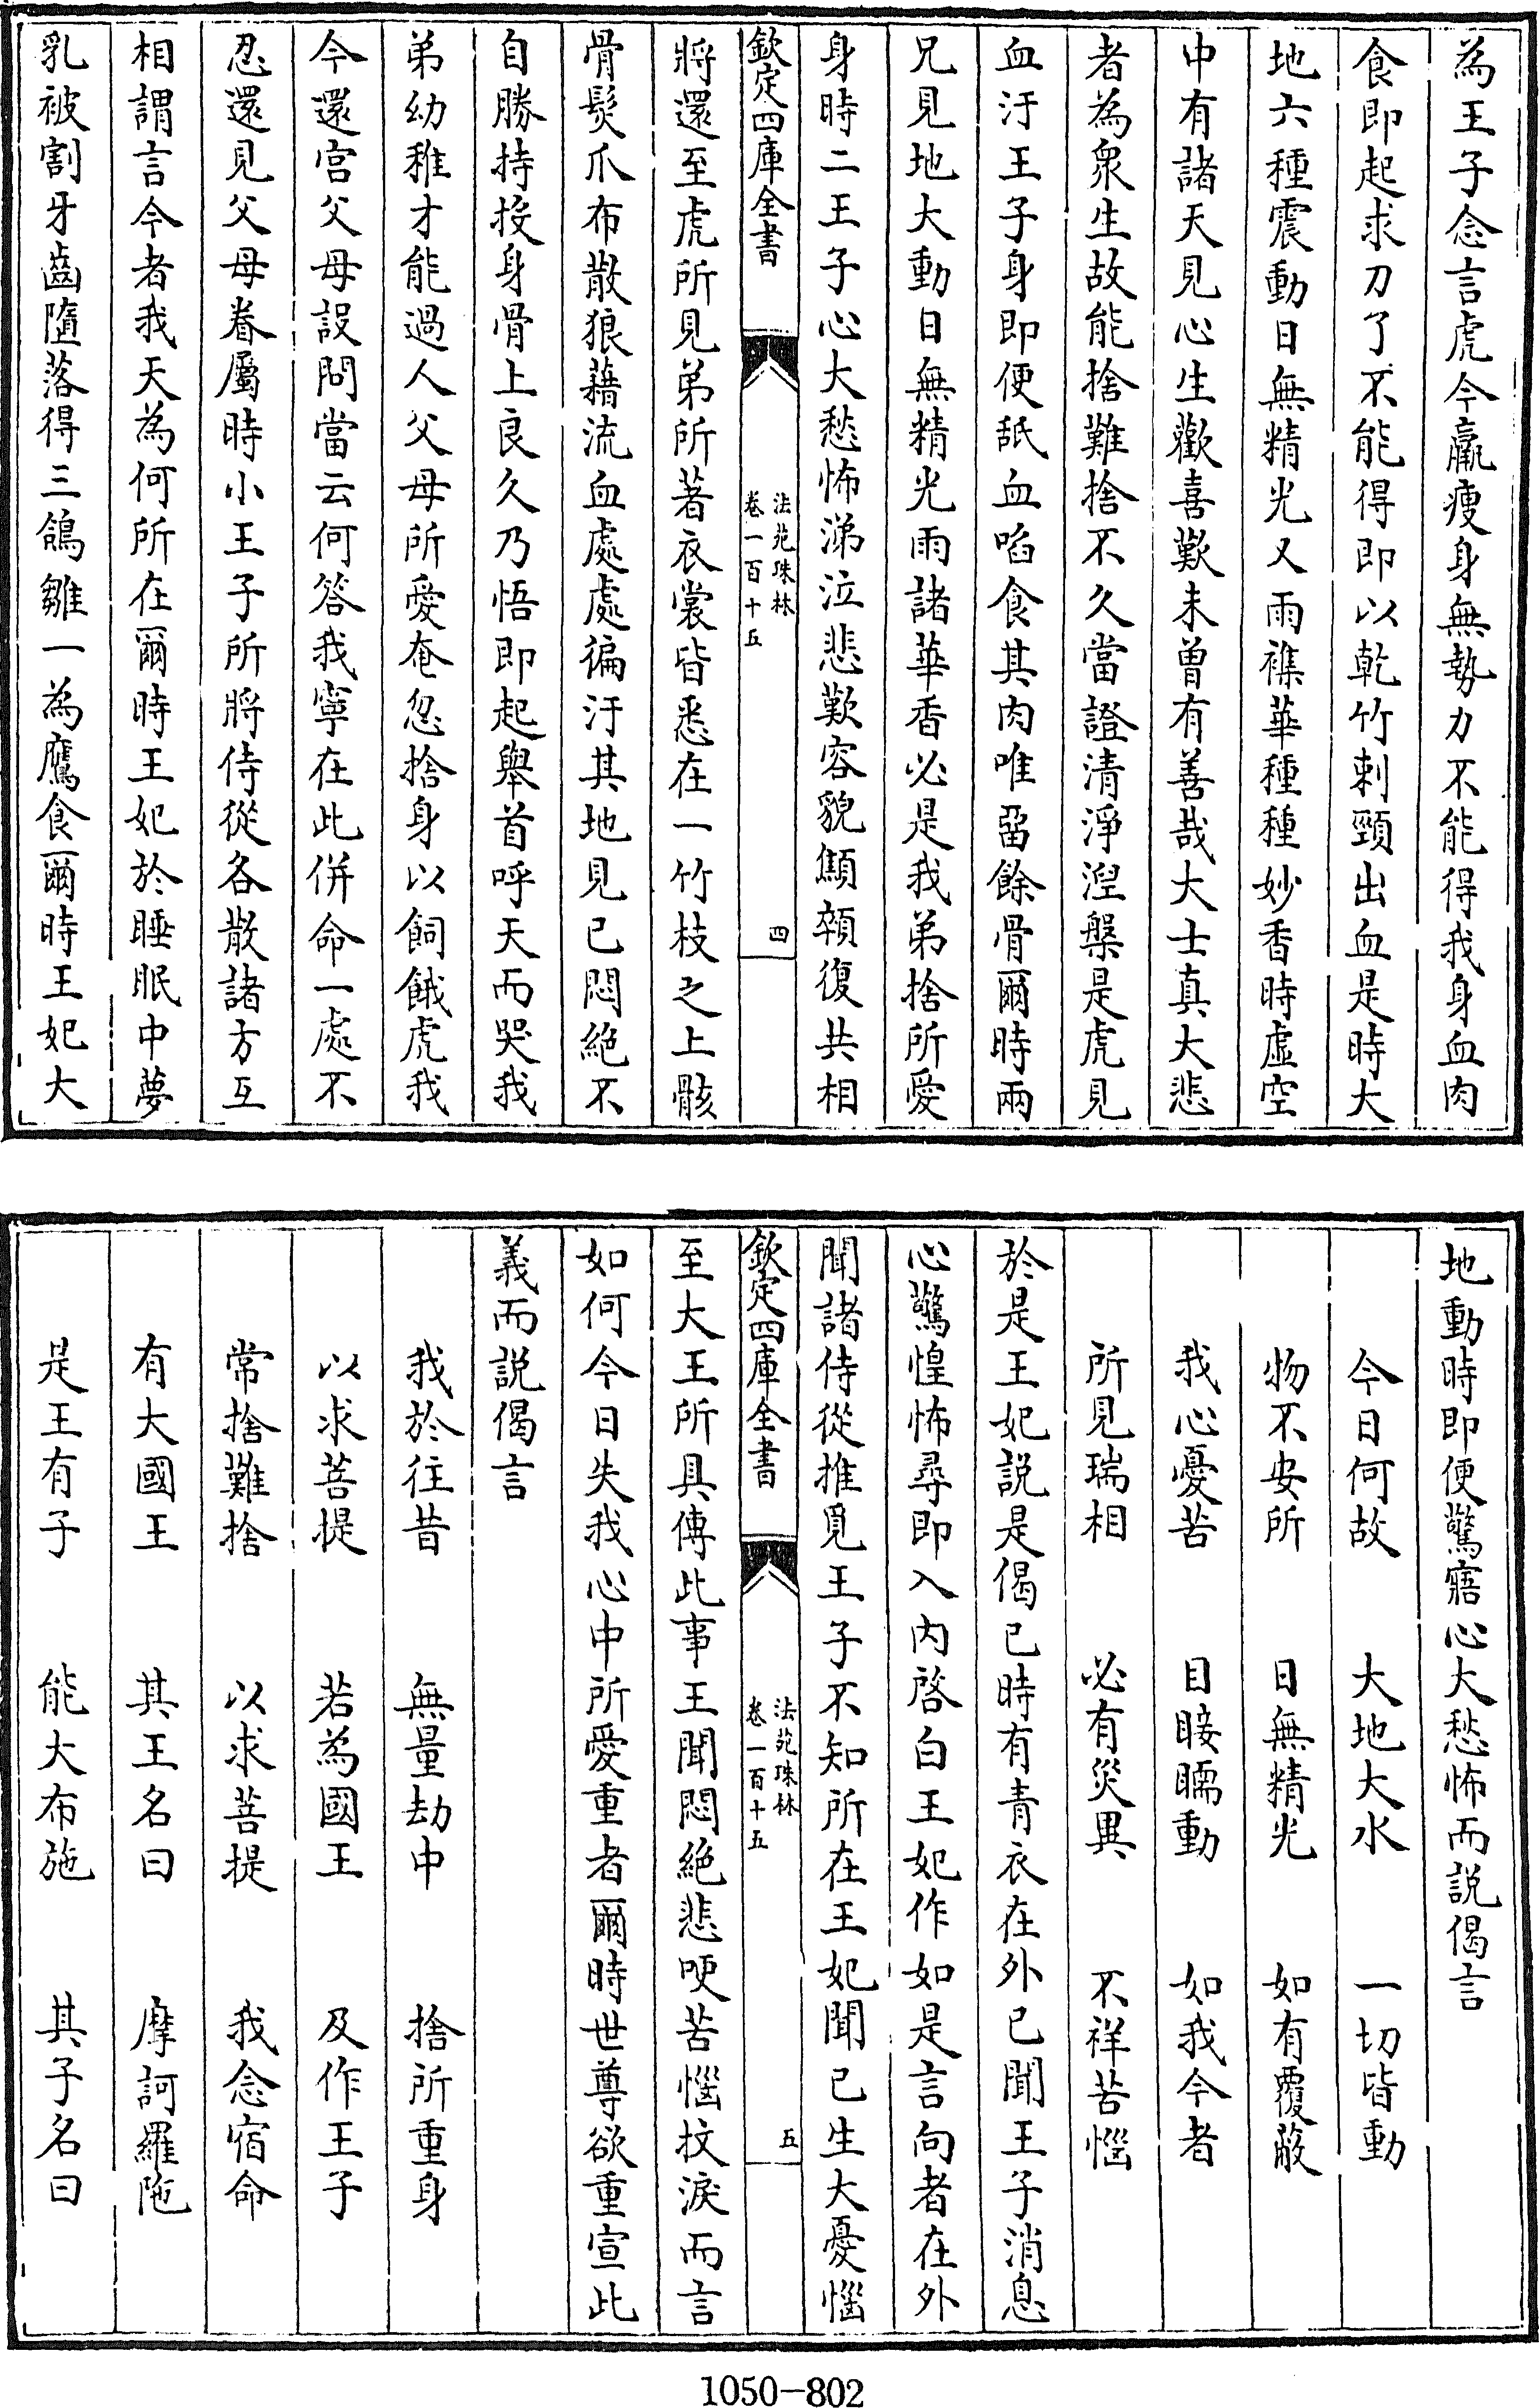 為王子念言虎今羸瘦身無勢力不能得我身血肉
食即起求刀了不能得即以乾竹刺頸出血是時大
地六種震動日無精光又雨襍華種種妙香時虛空
中有諸天見心生歡喜歎未曾有善哉大士真大悲
者為衆生故能捨難捨不久當證清淨涅槃是虎見
血汙王子身即便舐血啗食其肉唯留餘骨爾時兩
兄見地大動日無精光雨諸華香必是我弟捨所愛
身時二王子心大愁怖涕泣悲歎容貌顦顇復共相
欽定四庫全書
法苑珠林
卷一百十五
四
將還至虎所見弟所著衣裳皆悉在一竹枝之上骸
骨髮爪布散狼藉流血處處徧汙其地見已悶絕不
自勝持投身骨上良久乃悟即起舉首呼天而哭我
弟幼稚才能過人父母所愛奄忽捨身以飼餓虎我
今還宫父母設問當云何答我寧在此併命一處不
忍還見父母眷屬時小王子所將侍從各散諸方互
相謂言今者我天為何所在爾時王妃於睡眠中夢
乳被割牙齒墮落得三鴿雛一為鷹食爾時王妃大
地動時即便驚寤心大愁怖而説偈言
今日何故　大地大水　一切皆動
物不安所　日無精光　如有覆蔽
我心憂苦　目䀹瞤動　如我今者
所見瑞相　必有災異　不祥苦惱
於是王妃説是偈已時有青衣在外已聞王子消息
心驚惶怖尋即入内啓白王妃作如是言向者在外
聞諸侍從推覓王子不知所在王妃聞已生大憂惱
欽定四庫全書
法苑珠林
卷一百十五
五
至大王所具傳此事王聞悶絕悲哽苦惱抆淚而言
如何今日失我心中所愛重者爾時世尊欲重宣此
義而説偈言
我於往昔　無量劫中　捨所重身
以求菩提　若為國王　及作王子
常捨難捨　以求菩提　我念宿命
有大國王　其王名曰　摩訶羅陁
是王有子　能大布施　其子名曰
1050-802